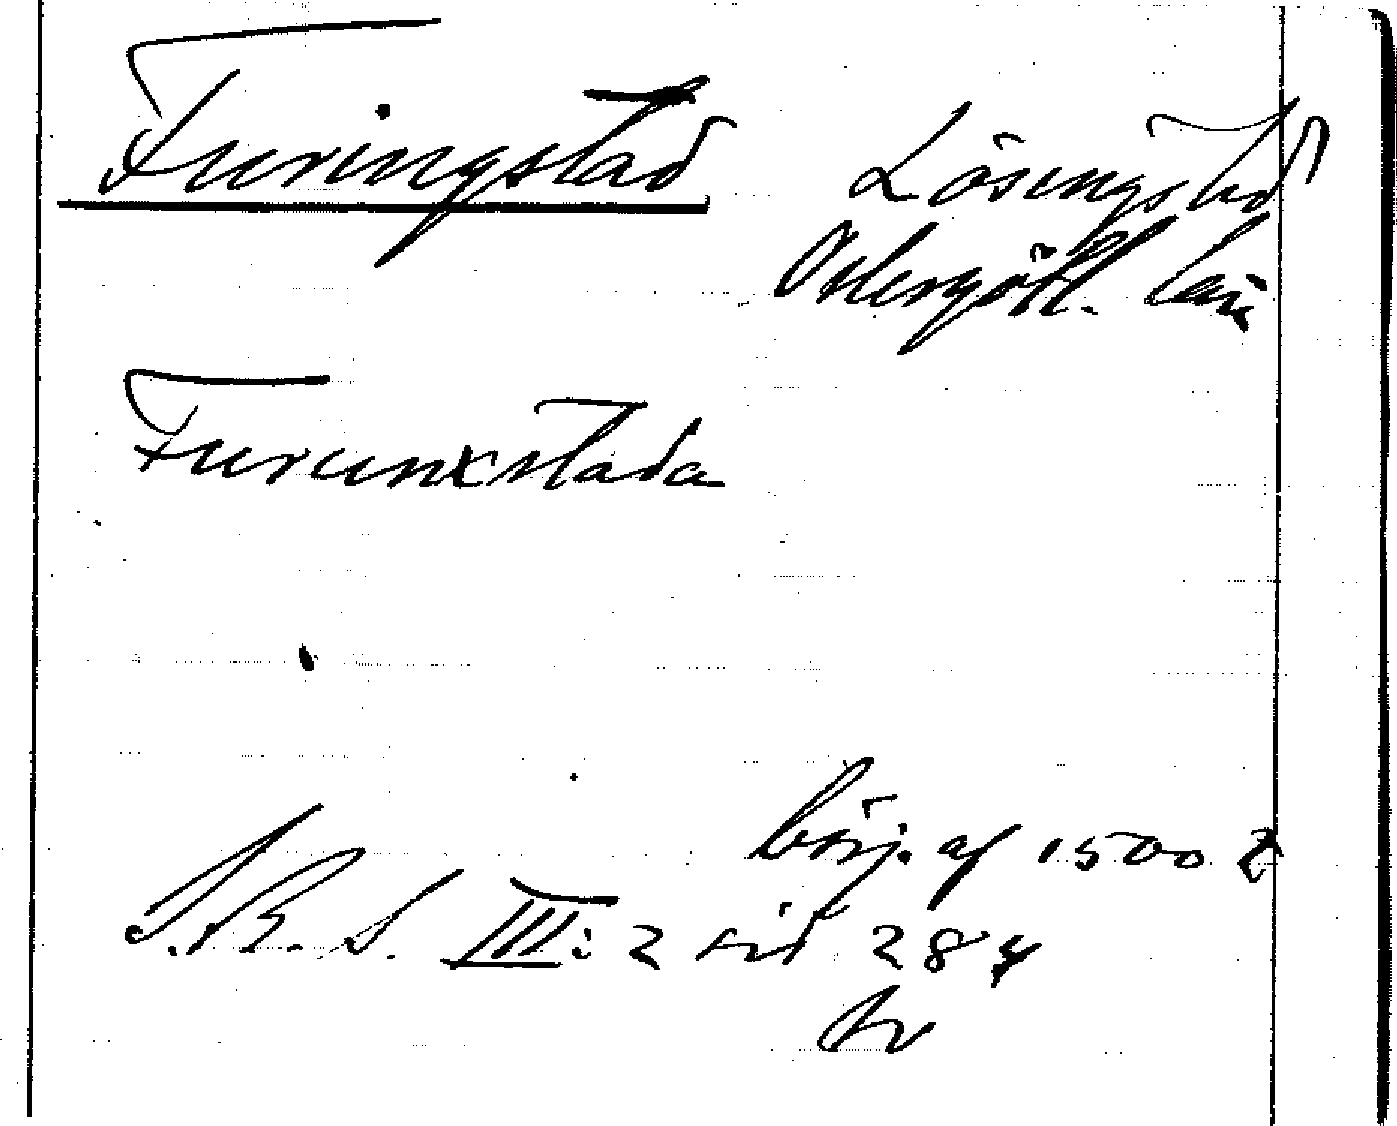 Furingstad Lösingstad
Östergötl. län
Furunxstada
börj. af 1500 t
S.R.S. III: 2 sid 284